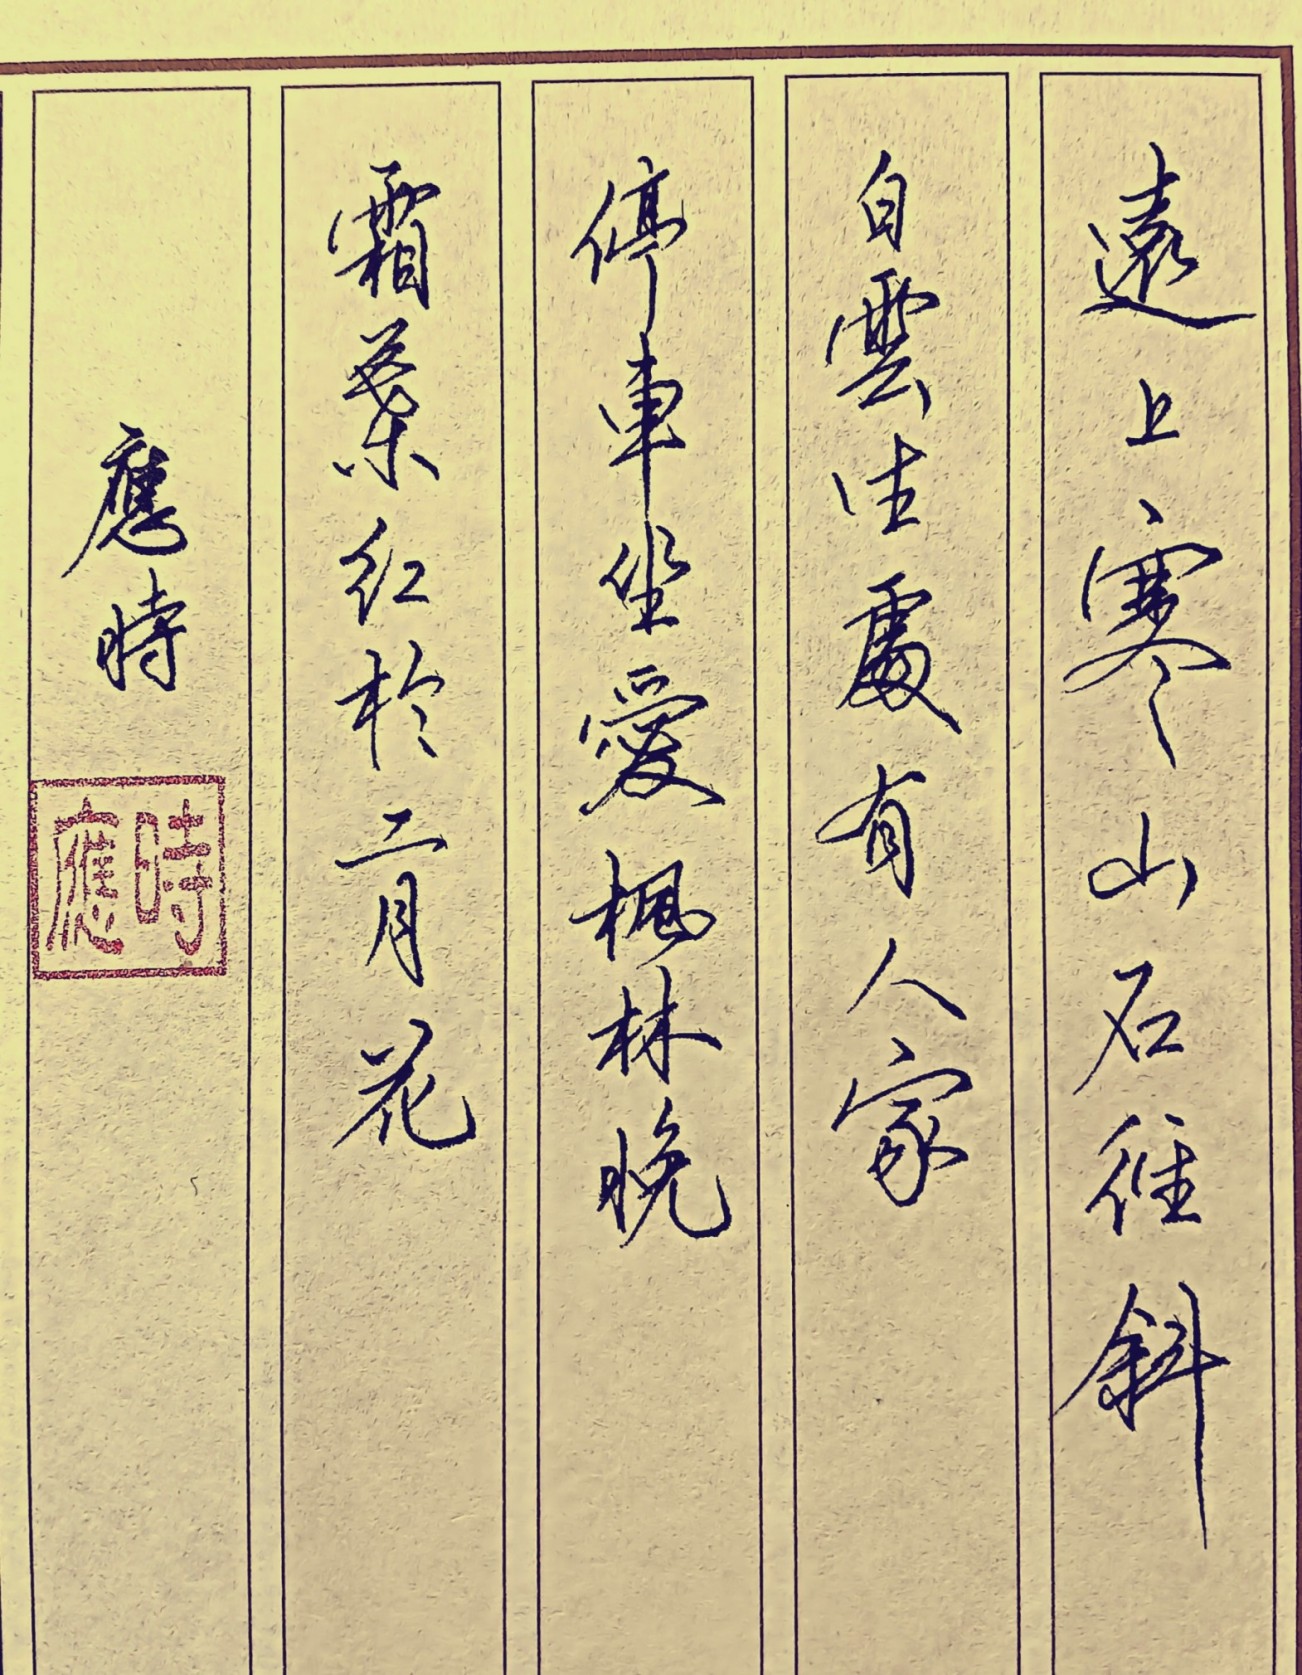 遠上寒山石徑斜
白雲生處有人家
停車坐愛楓林晚
霜葉紅於二月花
應時
時應